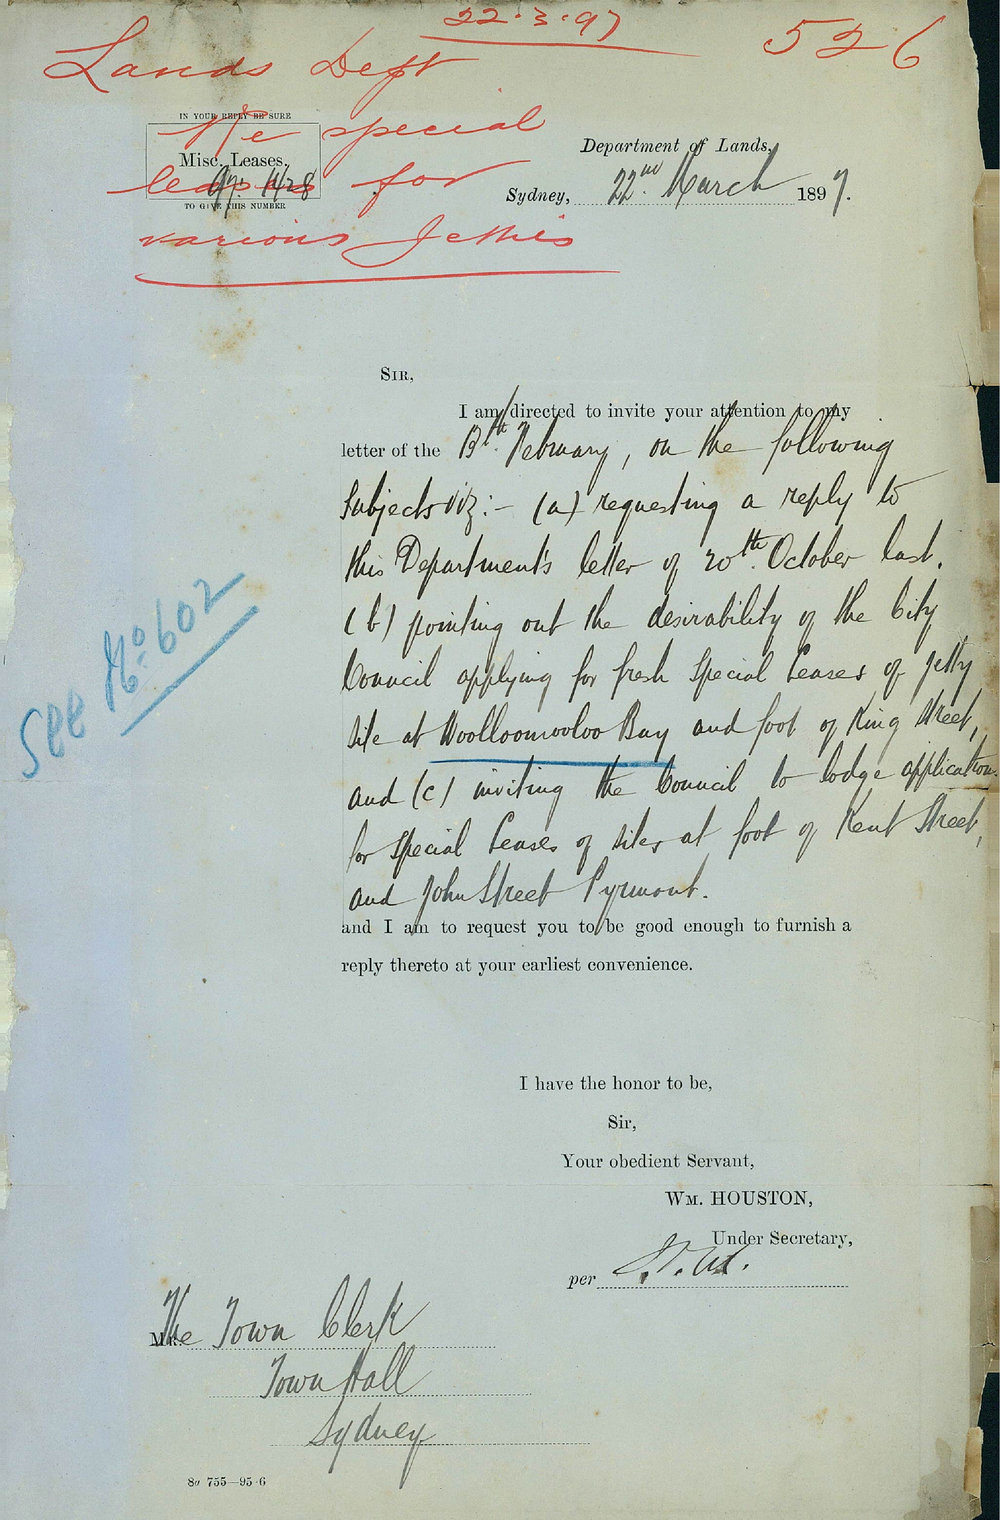 22.3.97
526
Lands Dept
Re special
leases for
various Jetties
IN YOUR REPLY BE SURE
Misc. Leases.
97. 1428
TO GIVE THIS NUMBER
Department of Lands,
Sydney, 22nd March 1897.
SIR,
I am directed to invite your attention to my
letter of the 13th February, on the following
subjects viz:- (a) requesting a reply to
this Department's letter of 20th October last.
(b) pointing out the desirability of the City
Council applying for fresh Special Leases of jetty
site at Woolloomooloo Bay and foot of King Street,
and (c) inviting the Council to lodge applications
for Special Leases of sites at foot of Kent Street,
and John Street Pyrmont.
and I am to request you to be good enough to furnish a
reply thereto at your earliest convenience.
See No. 602
I have the honor to be,
Sir,
Your obedient Servant,
WM. HOUSTON,
Under Secretary,
per
MR. The Town Clerk
Town Hall
Sydney
8a 755—95-6